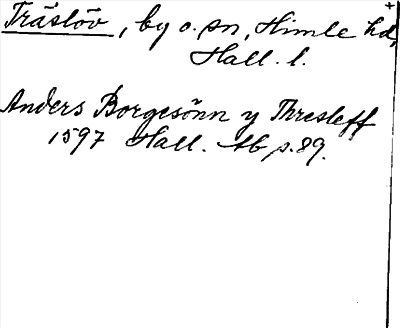 Träslöv, by o. sn, Himle hd,
Hall. l.
Anders Borgesönn y Thresleff
1597 Hall. Ab p. 89.